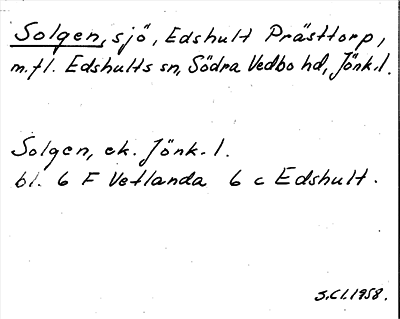 Solgen, sjö, Edshult Prästtorp,
m.fl. Edshults sn, Södra Vedbo hd, Jönk.l.
Solgen, ek. Jönk. l.
bl. 6 F Vetlanda 6 c Edshult.
S.Cl.1958.